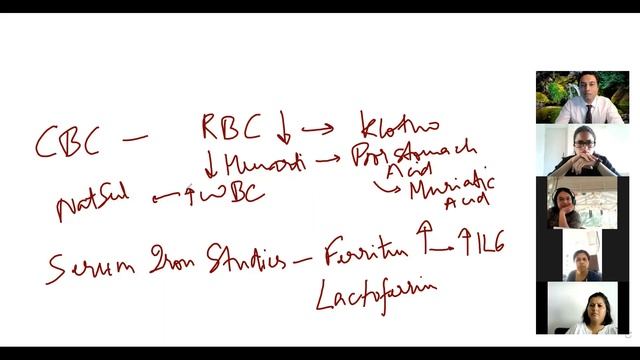 CBC — RBC ↓ → Klotho
↓ → Poor Stomach Acid
NatSul ← ↑ WBC
↳ Muriatic Acid
Serum Iron Studies — Ferritin ↑ → ↑ IL6
Lactoferrin